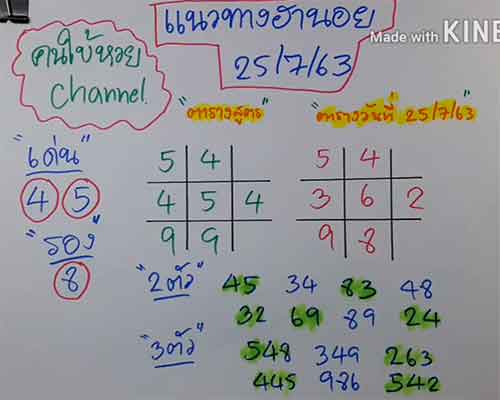 แนวทางฮานอย
25/7/63
Made with KINE
คนใบ้หวย
Channel.
"ตารางสูตร"
"ตารางวันที่ 25/7/63"
"เด่น"
4 5
"รอง"
8
5 4
4 5 4
9 9
5 4
3 6 2
9 8
"2ตัว" 45 34 83 48
32 69 89 24
"3ตัว" 548 349 263
445 986 542